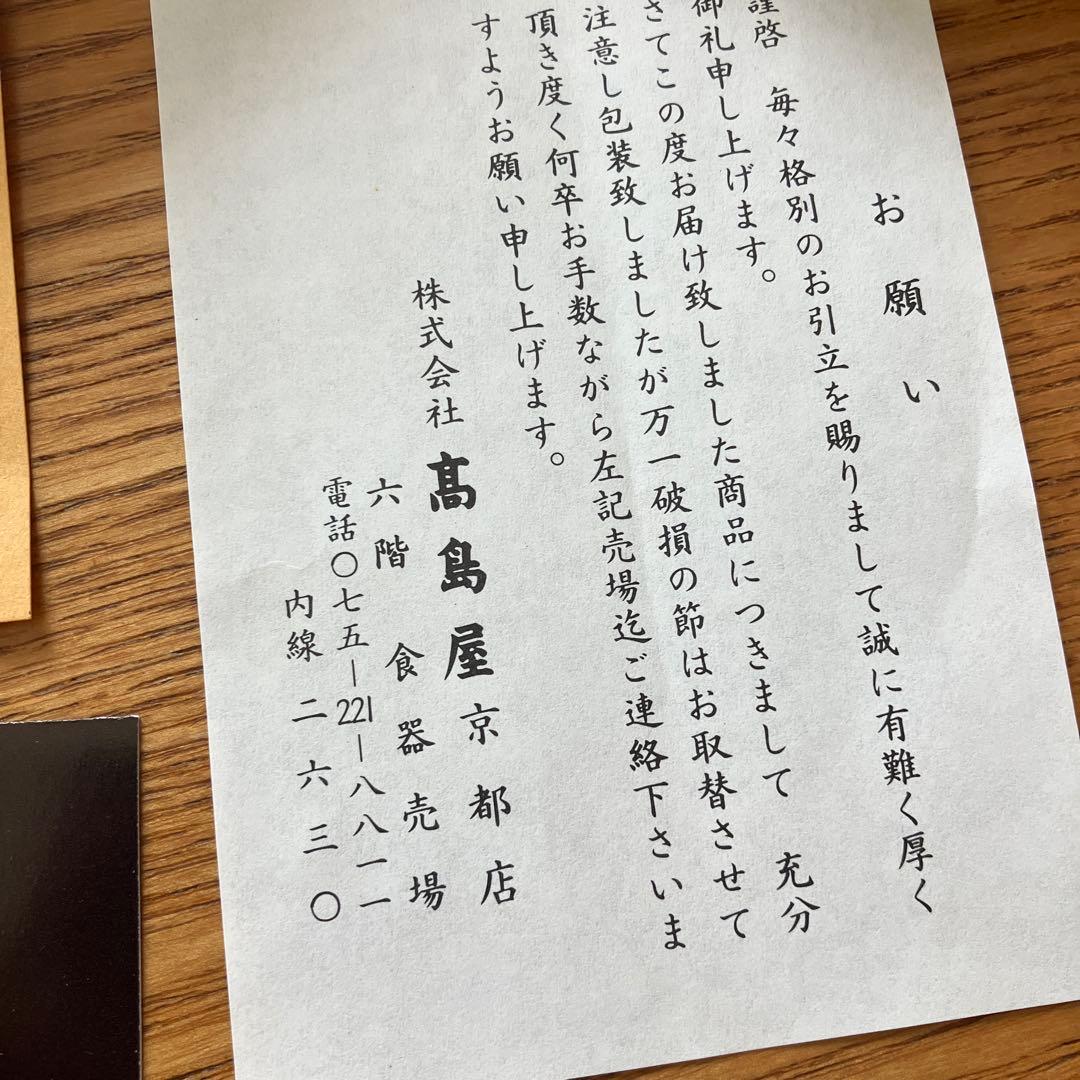 お願い
謹啓 毎々格別のお引立を賜りまして誠に有難く厚く
御礼申し上げます。
さてこの度お届け致しました商品につきまして 充分
注意し包装致しましたが万一破損の節はお取替させて
頂き度く何卒お手数ながら左記売場迄ご連絡下さいま
すようお願い申し上げます。
株式会社 髙島屋京都店
六階 食器売場
電話〇七五ー221ー八八一一
内線 二六三〇